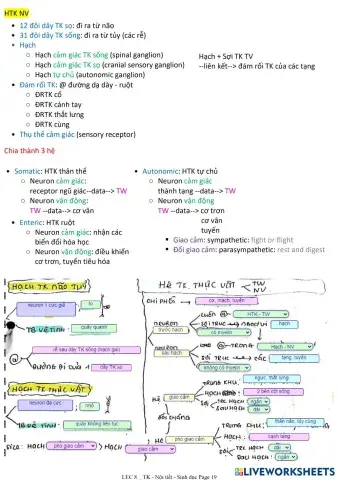 HTK NV
12 đôi dây TK sọ: đi ra từ não
31 đôi dây TK sống: đi ra từ tủy (các rễ)
Hạch
Hạch cảm giác TK sống (spinal ganglion)
Hạch cảm giác TK sọ (cranial sensory ganglion)
Hạch tự chủ (autonomic ganglion)
Hạch + Sợi TK TV
--liên kết--> đám rối TK của các tạng
Đám rối TK: @ đường dạ dày - ruột
ĐRTK cổ
ĐRTK cánh tay
ĐRTK thắt lưng
ĐRTK cùng
Thụ thể cảm giác (sensory receptor)
Chia thành 3 hệ
Somatic: HTK thân thể
Neuron cảm giác:
receptor ngũ giác--data--> TW
Neuron vận động:
TW --data--> cơ vân
Enteric: HTK ruột
Neuron cảm giác: nhận các
biến đổi hóa học
Neuron vận động: điều khiển
cơ trơn, tuyến tiêu hóa
Autonomic: HTK tự chủ
Neuron cảm giác
thành tạng --data--> TW
Neuron vận động
TW --data--> cơ trơn
cơ vân
tuyến
Giao cảm: sympathetic: fight or flight
Đối giao cảm: parasympathetic: rest and digest
HẠCH TK NÃO TUỶ
neuron 1 cực giả
to
TB vệ tinh:
quây quanh
rễ sau dây TK sống (hạch gai)
Đường đi của
dây TK sọ
HẠCH TK THỰC VẬT
neuron đa cực
nhỏ
TB vệ tinh:
quây không liên tục
Size: HẠCH
phó giao cảm
> HẠCH
giao cảm
HỆ TK THỰC VẬT
TW
NV
CHI PHỐI
cơ, mạch, tuyến
neuron
trước hạch
HTK - TW
hạch
có myelin
neuron
sau hạch
Hạch - NV
tạng, tuyến
không có myelin
HỆ
giao cảm
TRUNG KHU:
ngực, thắt lưng
HẠCH
2 bên cột sống
TRC HẠCH
ngắn
SAU HẠCH
dài
HỆ
phó giao cảm
TRUNG KHU:
thân não, tủy cùng
HẠCH:
cạnh tạng
TRC HẠCH
dài
SAU HẠCH:
ngắn
LEC 8 _ TK - Nội tiết - Sinh dục Page 19
LIVEWORKSHEETS